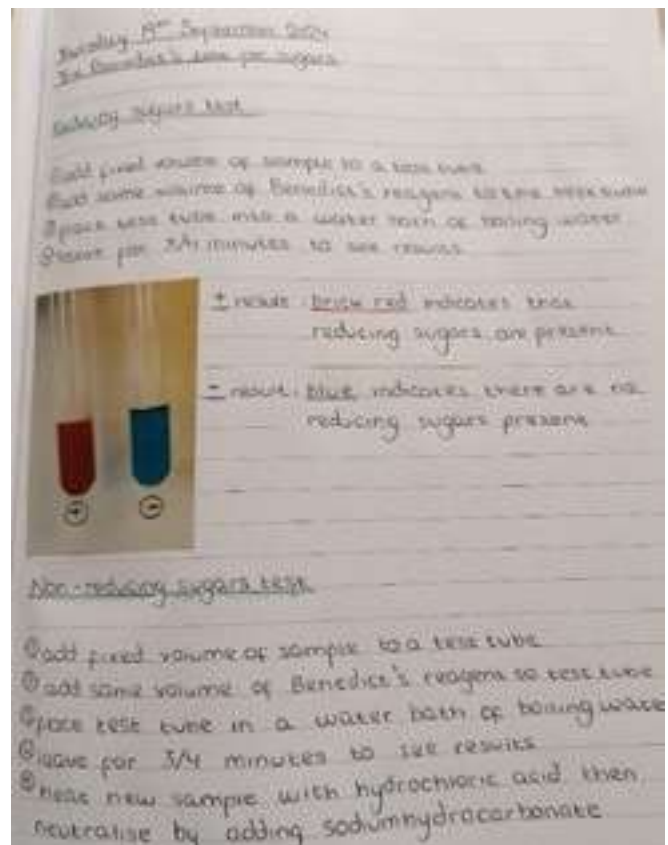 September 2024
The Benedict's test for sugars
Reducing sugars test
①add fixed volume of sample to a test tube
②add same volume of Benedict's reagent to the test tube
③place test tube into a water bath of boiling water
④leave for 3/4 minutes to see results
+ result: brick red indicates that
reducing sugars are present
- result: blue indicates there are no
reducing sugars present
+
-
Non-reducing sugars test
①add fixed volume of sample to a test tube
②add same volume of Benedict's reagent to test tube
③place test tube in a water bath of boiling water
④leave for 3/4 minutes to see results
⑤heat new sample with hydrochloric acid then
neutralise by adding sodiumhydrocarbonate